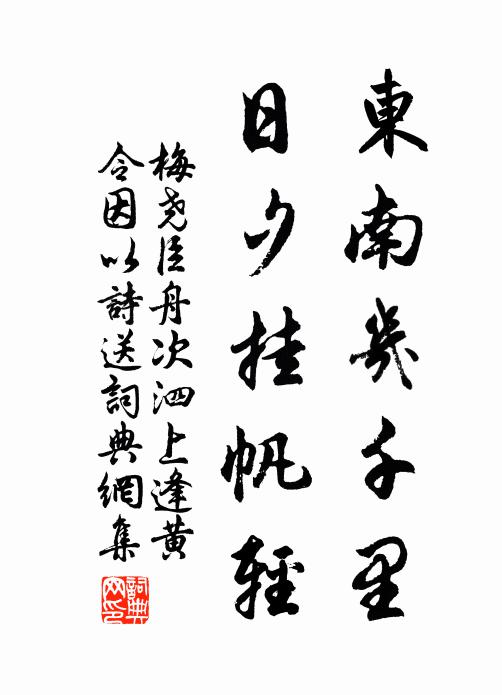 東南幾千里
日夕挂帆輕
梅堯臣舟次泗上逢黃
令因以詩送詞典網集
詞典
网印